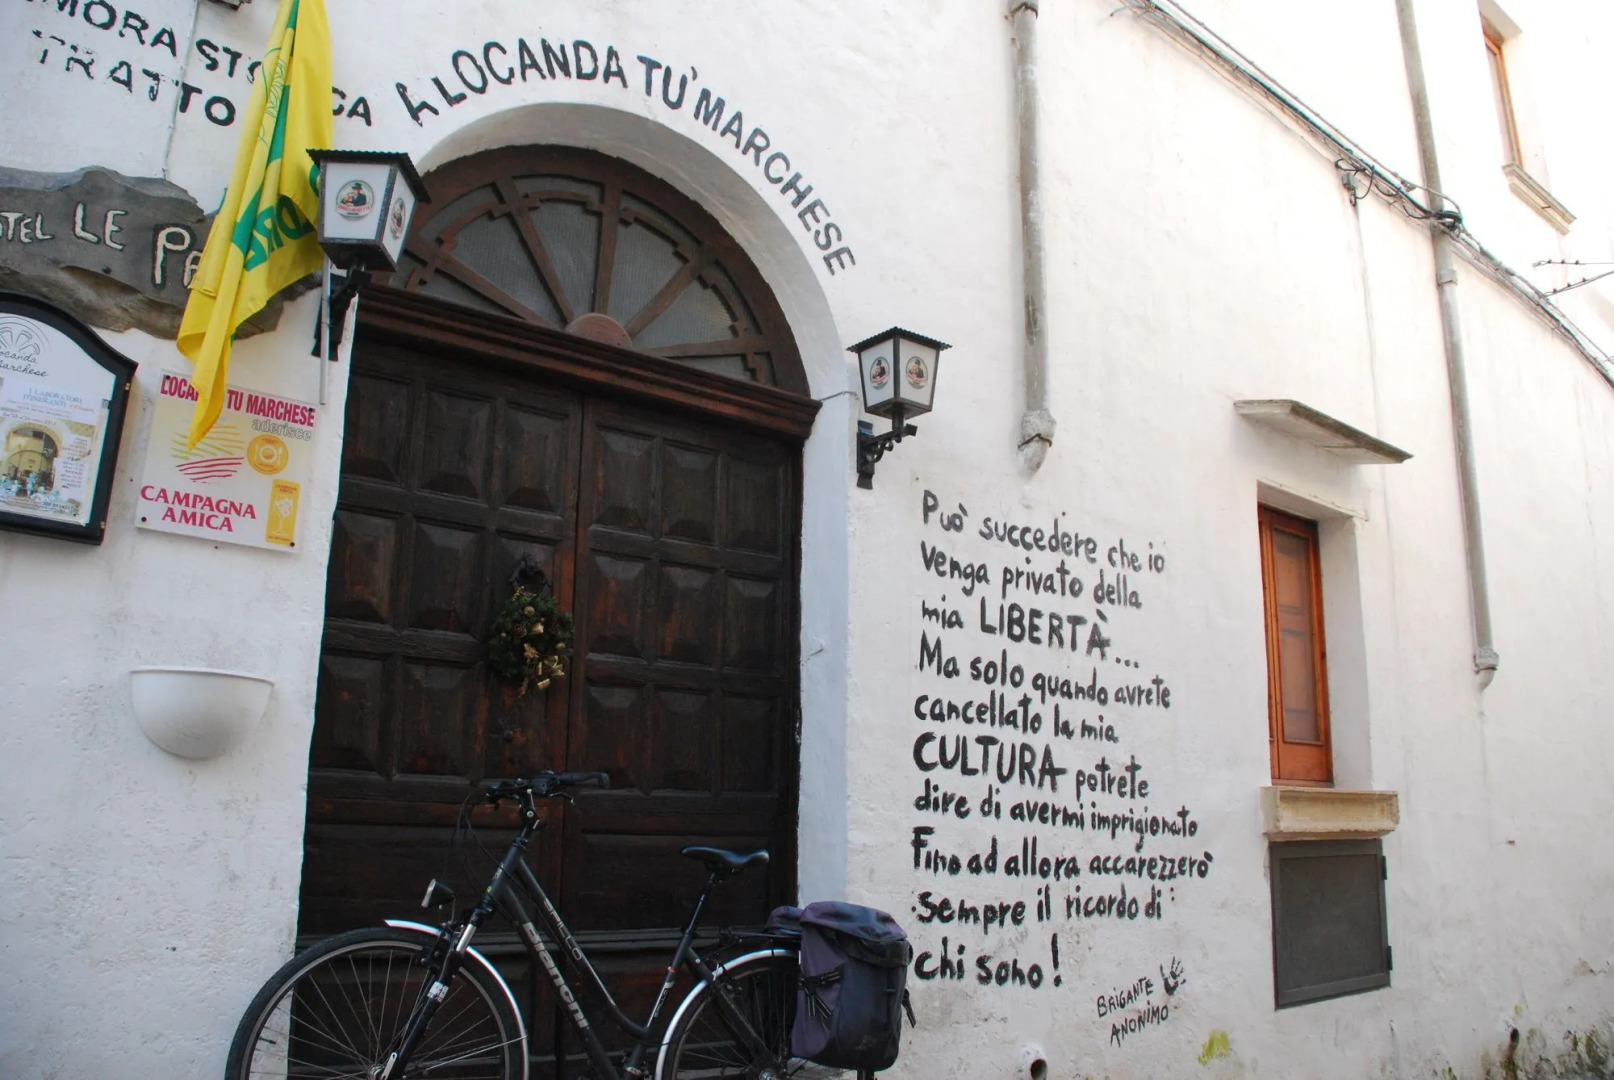 MORA STORICA
TRATTO
A LOCANDA TU' MARCHESE
LE
Locanda
Marchese
I LABORATORI
ITINERANTI
LOCANDA TU MARCHESE
aderisce
CAMPAGNA
AMICA
Può succedere che io
venga privato della
mia LIBERTÀ...
Ma solo quando avrete
cancellato la mia
CULTURA potrete
dire di avermi imprigionato
Fino ad allora accarezzerò
sempre il ricordo di
chi sono!
BRIGANTE
ANONIMO
SPILLO
Bianchi